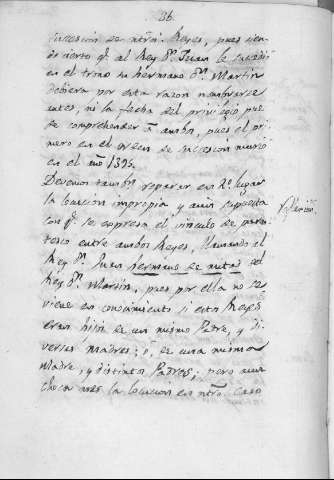 36.
sucesion de ntrõs. Reyes, pues sien-
do cierto q.e al Rey D.n Juan le sucedió
en el trono su hermano D.n Martin
debiera por esta razon nombrarse
antes, ni la fecha del privilegio pue-
de comprehender á ambos, pues el pri-
mero en el orden de sucesion murió
en el año 1395.
Devemos tambn. reparar en 2.o lugar
la locucion impropia y aun supuesta
con q.e se expresa el vinculo de paren-
tesco entre ambos Reyes, llamando el
Rey D.n Juan hermano de mitad del
Rey D.n Martin, pues por ella no se
viene en conocimiento si estos Reyes
eran hijos de un mismo Padre, y di-
versas Madres; ó, de una misma
Madre, y distintos Padres; pero aun
choca mas la locucion en ntrõ. caso